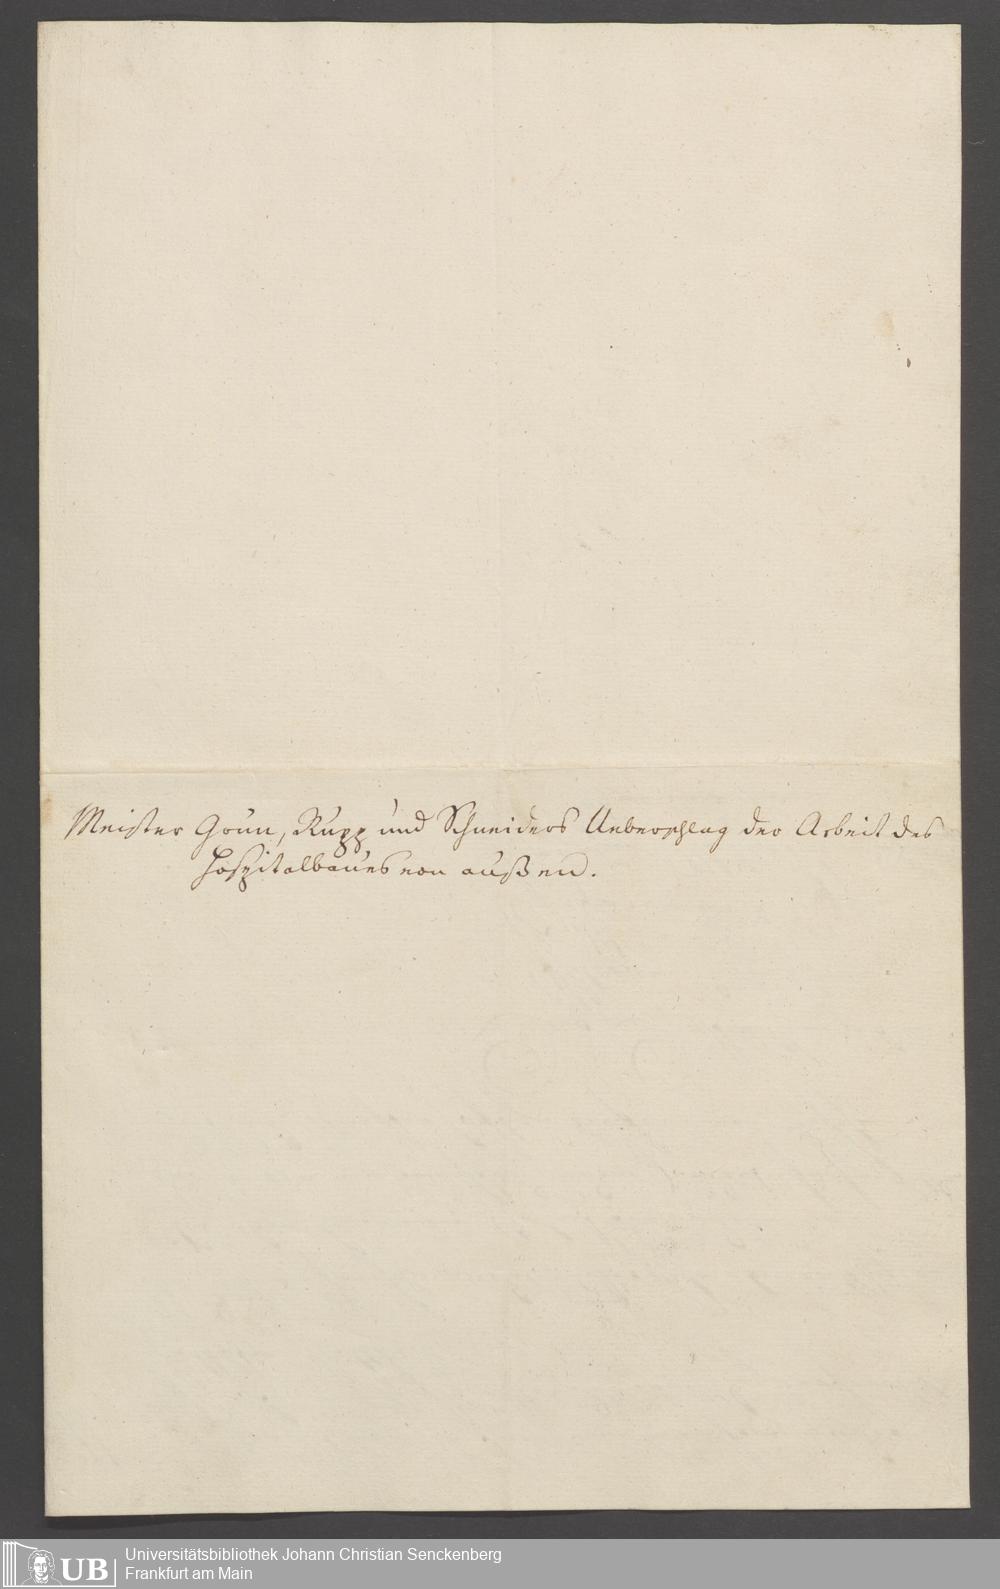 Meister Grun, Rupp und Schneiders Ueberschlag der Arbeit des
Hospitalbaues von außen.
UB
Universitätsbibliothek Johann Christian Senckenberg
Frankfurt am Main